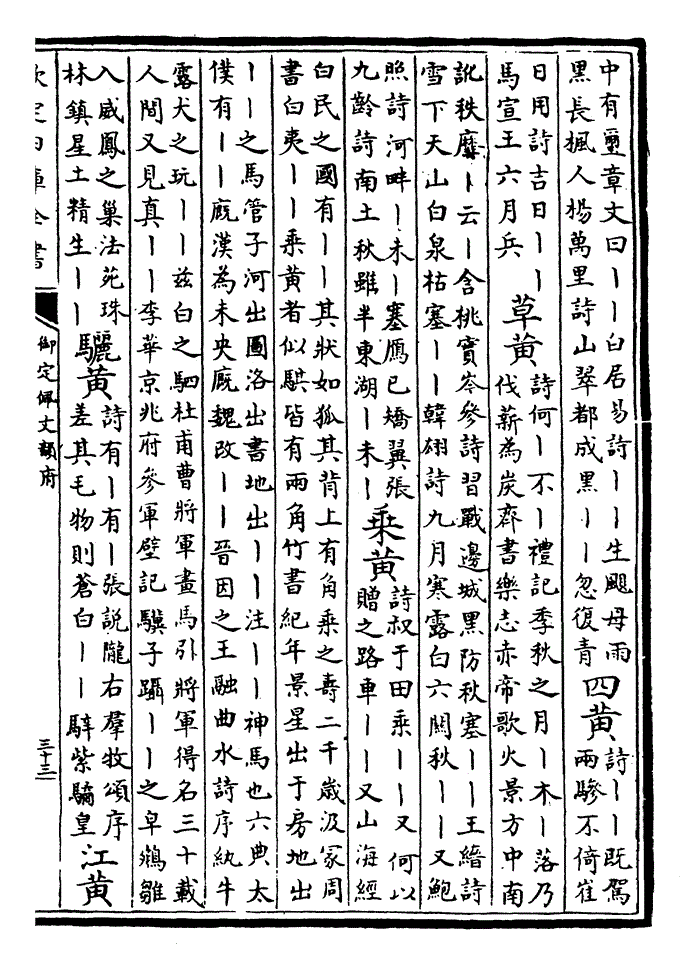 中有璽章文曰丨丨白居易詩丨丨生颶母雨
黑長楓人楊萬里詩山翠都成黑丨丨忽復青
四黄
詩丨丨既駕
兩驂不倚崔
日用詩吉日丨丨
馬宣王六月兵
草黄
詩何丨不丨禮記季秋之月丨木丨落乃
伐薪為炭齊書樂志赤帝歌火景方中南
訛秩靡丨云丨含桃實岑參詩習戰邊城黑防秋塞丨丨王縉詩
雪下天山白泉枯塞丨丨韓翃詩九月寒露白六關秋丨丨又鮑
照詩河畔丨未丨塞鴈已矯翼張
九齡詩南土秋雖半東湖丨未丨
乘黄
詩叔于田乘丨丨又何以
贈之路車丨丨又山海經
白民之國有丨丨其狀如狐其背上有角乘之壽二千歲汲冢周
書白夷丨丨乘黄者似騏皆有兩角竹書紀年景星出于房地出
丨丨之馬管子河出圖洛出書地出丨丨注丨丨神馬也六典太
僕有丨丨廐漢為未央廐魏改丨丨晉因之王融曲水詩序紈牛
露犬之玩丨丨兹白之駟杜甫曹將軍畫馬引將軍得名三十載
人間又見真丨丨李華京兆府參軍壁記驥子躡丨丨之皁鵷雛
入威鳳之巢法苑珠
林鎮星土精生丨丨
驪黄
詩有丨有丨張説隴右羣牧頌序
差其毛物則蒼白丨丨騂紫騧皇
江黄
欽定四庫全書
御定佩文韻府
三十三